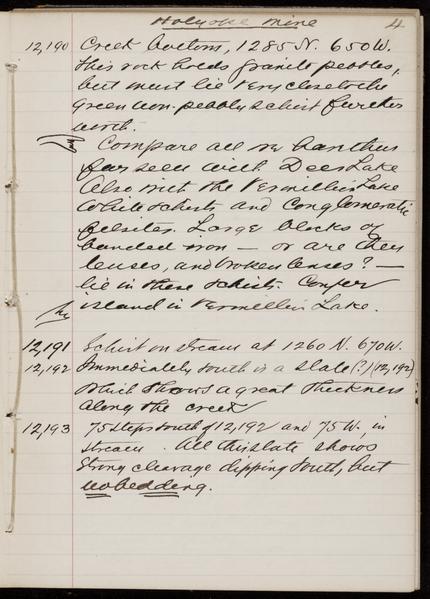 Holyoke Mine 4
12,190 Creek bottom, 1285 N. 650 W.
This rock holds granite pebbles,
but must lie very close to the
green non-pebbly schist further
north.
Compare all
far seen with Deer Lake
Also with the Vermilion Lake
White schists and Conglomeratic
felsites. Large blocks of
banded iron — or are they
lenses, and broken lenses? —
lie in these schists.
island in Vermilion Lake.
12,191 Schist on stream at 1260 N. 670 W.
12,192 Immediately south is a slate (?) (12,192)
which shows a great thickness
along the creek
12,193 75 steps south of 12,192 and 75 W., in
stream. All this slate shows
strong cleavage dipping south, but
no bedding.